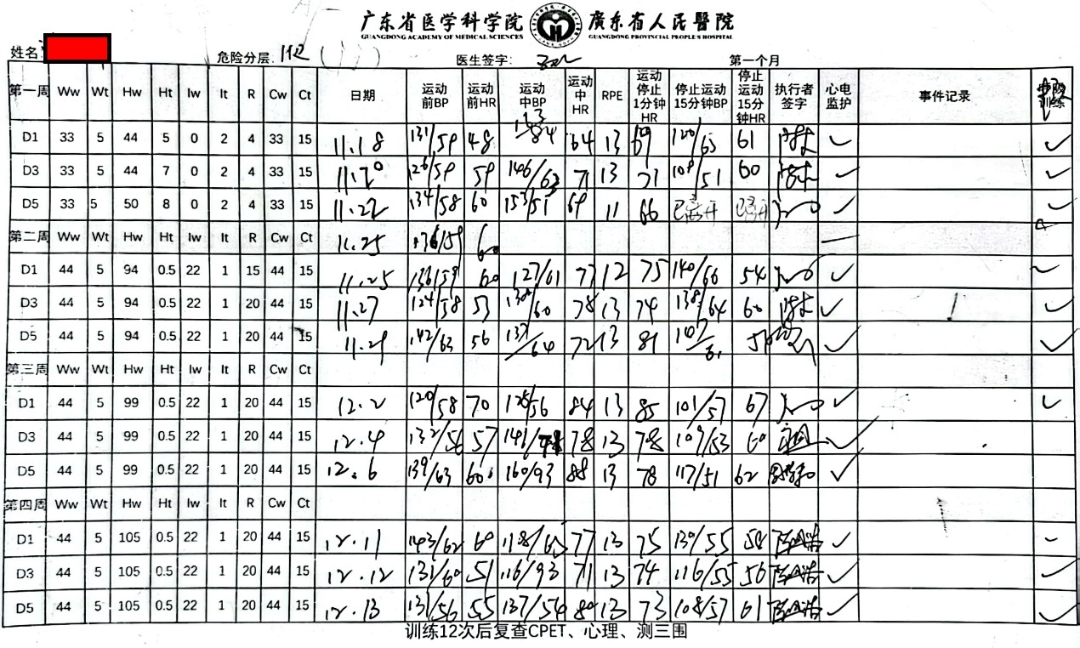 广东省医学科学院 廣東省人民醫院
GUANGDONG ACADEMY OF MEDICAL SCIENCES GUANGDONG PROVINCIAL PEOPLE'S HOSPITAL
姓名: 危险分层: 医生签字: 第一个月
第一周 Ww Wt Hw Ht Iw It R Cw Ct 日期 运动前BP 运动前HR 运动中BP 运动中HR RPE 运动停止1分钟HR 停止运动15分钟BP 停止运动15分钟HR 执行者签字 心电监护 事件记录 训练
D1 33 5 44 5 0 2 4 33 15 11.18 131/59 48 64 13 120/65 61 ✓ ✓
D3 33 5 44 7 0 2 4 33 15 11.20 126/59 59 146/63 71 13 71 109/51 60 ✓ ✓
D5 33 5 50 8 0 2 4 33 15 11.22 134/58 60 153/51 69 11 66 已离开 已离开 ✓ ✓
第二周 Ww Wt Hw Ht Iw It R Cw Ct 11.25 136/59 60
D1 44 5 94 0.5 22 1 15 44 15 11.25 136/59 60 127/61 77 12 75 140/66 54 ✓ ✓
D3 44 5 94 0.5 22 1 20 44 15 11.27 124/58 53 130/60 78 13 74 138/64 60 ✓ ✓
D5 44 5 94 0.5 22 1 20 44 15 11.29 142/63 56 137/64 72 13 81 ✓ ✓
第三周 Ww Wt Hw Ht Iw It R Cw Ct
D1 44 5 99 0.5 22 1 20 44 15 12.2 120/58 70 128/56 84 13 85 101/57 67 ✓ ✓
D3 44 5 99 0.5 22 1 20 44 15 12.4 132/56 57 78 13 78 109/53 60 ✓ ✓
D5 44 5 99 0.5 22 1 20 44 15 12.6 139/63 60 160/93 88 13 78 117/51 62 ✓ ✓
第四周 Ww Wt Hw Ht Iw It R Cw Ct
D1 44 5 105 0.5 22 1 20 44 15 12.11 143/62 60 118/65 77 13 75 130/55 58 ✓ ✓
D3 44 5 105 0.5 22 1 20 44 15 12.12 131/60 51 116/93 71 13 74 116/55 56 ✓ ✓
D5 44 5 105 0.5 22 1 20 44 15 12.13 131/56 55 137/54 80 13 73 108/57 61 ✓ ✓
训练12次后复查CPET、心理、测三围